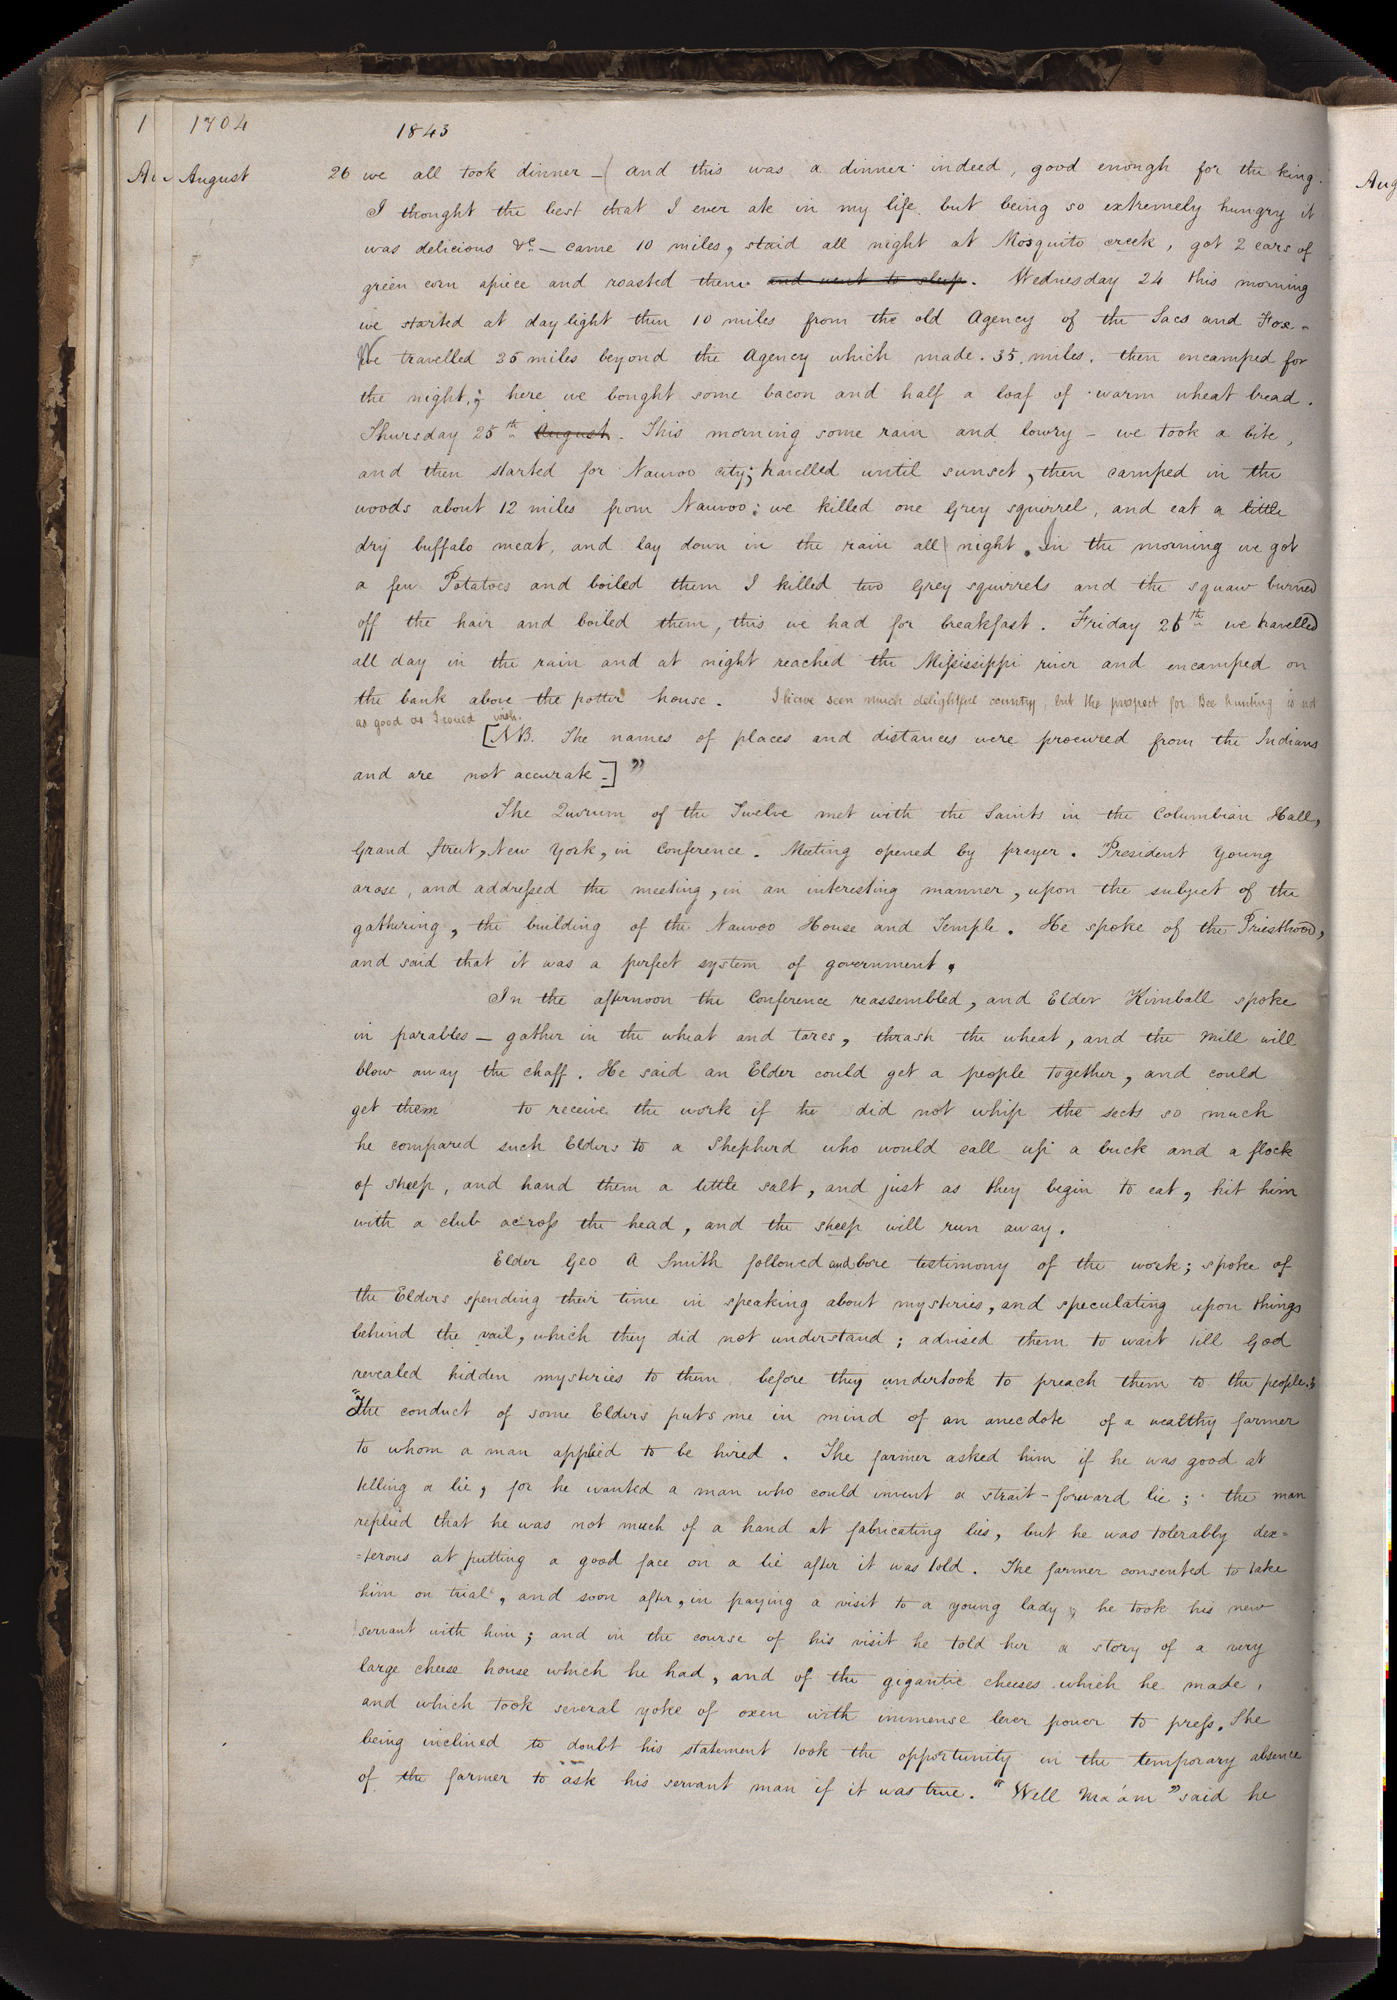 1 1704 1843
Au August 26 we all took dinner — (and this was a dinner indeed, good enough for the king. Aug
I thought the best that I ever ate in my life, but being so extremely hungry it
was delicious &c — came 10 miles, staid all night at Mosquito creek, got 2 ears of
green corn apiece and roasted them and went to sleep. Wednesday 24 this morning
we started at daylight then 10 miles from the old Agency of the Sacs and Fox-
We travelled 35 miles beyond the Agency which made. 35. miles. then encamped for
the night,; here we bought some bacon and half a loaf of warm wheat bread.
Thursday 25th August. This morning some rain and lowry — we took a bite,
and then started for Nauvoo city; travelled until sunset, then camped in the
woods about 12 miles from Nauvoo; we killed one Grey squirrel, and eat a little
dry buffalo meat, and lay down in the rain all night. In the morning we got
a few Potatoes and boiled them I killed two Grey squirrels and the squaw burned
off the hair and boiled them, this we had for breakfast. Friday 26th we travelled
all day in the rain and at night reached the Mississippi river and encamped on
the bank above the potter house. I have seen much delightful country, but the prospect for Bee hunting is not
as good as I could wish.
[NB. The names of places and distances were procured from the Indians
and are not accurate.]"
The Quorum of the Twelve met with the Saints in the Columbian Hall,
Grand Street, New York, in Conference. Meeting opened by prayer. President Young
arose, and addressed the meeting, in an interesting manner, upon the subject of the
gathering, the building of the Nauvoo House and Temple. He spoke of the Priesthood,
and said that it was a perfect system of government.
In the afternoon the Conference reassembled, and Elder Kimball spoke
in parables — gather in the wheat and tares, thrash the wheat, and the mill will
blow away the chaff. He said an Elder could get a people together, and could
get them to receive the work if he did not whip the sects so much
he compared such Elders to a Shepherd who would call up a buck and a flock
of sheep, and hand them a little salt, and just as they begin to eat, hit him
with a club across the head, and the sheep will run away.
Elder Geo A Smith followed and bore testimony of the work; spoke of
the Elders spending their time in speaking about mysteries, and speculating upon things
behind the vail, which they did not understand; advised them to wait till God
revealed hidden mysteries to them before they undertook to preach them to the people.;
"The conduct of some Elders puts me in mind of an anecdote of a wealthy farmer
to whom a man applied to be hired. The farmer asked him if he was good at
telling a lie, for he wanted a man who could invent a strait-forward lie; the man
replied that he was not much of a hand at fabricating lies, but he was tolerably dex=
=terous at putting a good face on a lie after it was told. The farmer consented to take
him on trial, and soon after, in paying a visit to a young lady, he took his new
servant with him; and in the course of his visit he told her a story of a very
large cheese house which he had, and of the gigantic cheeses which he made,
and which took several yoke of oxen with immense lever power to press. She
being inclined to doubt his statement took the opportunity in the temporary absence
of the farmer to ask his servant man if it was true. "Well ma'am" said he